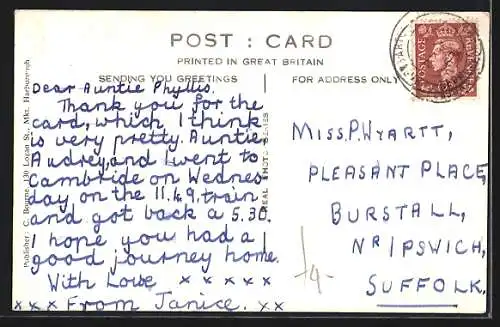 POST : CARD
PRINTED IN GREAT BRITAIN
SENDING YOU GREETINGS
FOR ADDRESS ONLY
Dear Auntie Phyllis.
Thank you for the
card, which I think
is very pretty. Auntie,
Audrey, and I went to
Cambride on Wednes-
day on the 11.49. train
and got back a 5.30.
I hope you had a
good journey home.
With Love x x x x x
x x x From Janice. x x
MISS.P.WYARTT,
PLEASANT PLACE,
BURSTALL,
NR IPSWICH,
SUFFOLK.
Publisher: C. Bourne, 130 Logan St., Mkt. Harborough
REAL PHOTO SERIES
POSTAGE
REVENUE